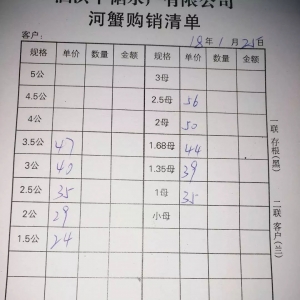 水产有限公司
河蟹购销清单
客户： 18年1月25日
规格 单价 数量 金额 规格 单价 数量 金额
5公 3母
4.5公 2.5母 56
4公 2母 50
3.5公 47 1.68母 44
3公 40 1.35母 39
2.5公 35 1母 35
2公 29 小母
1.5公 24
一联 存根(黑)
二联 客户(兰)